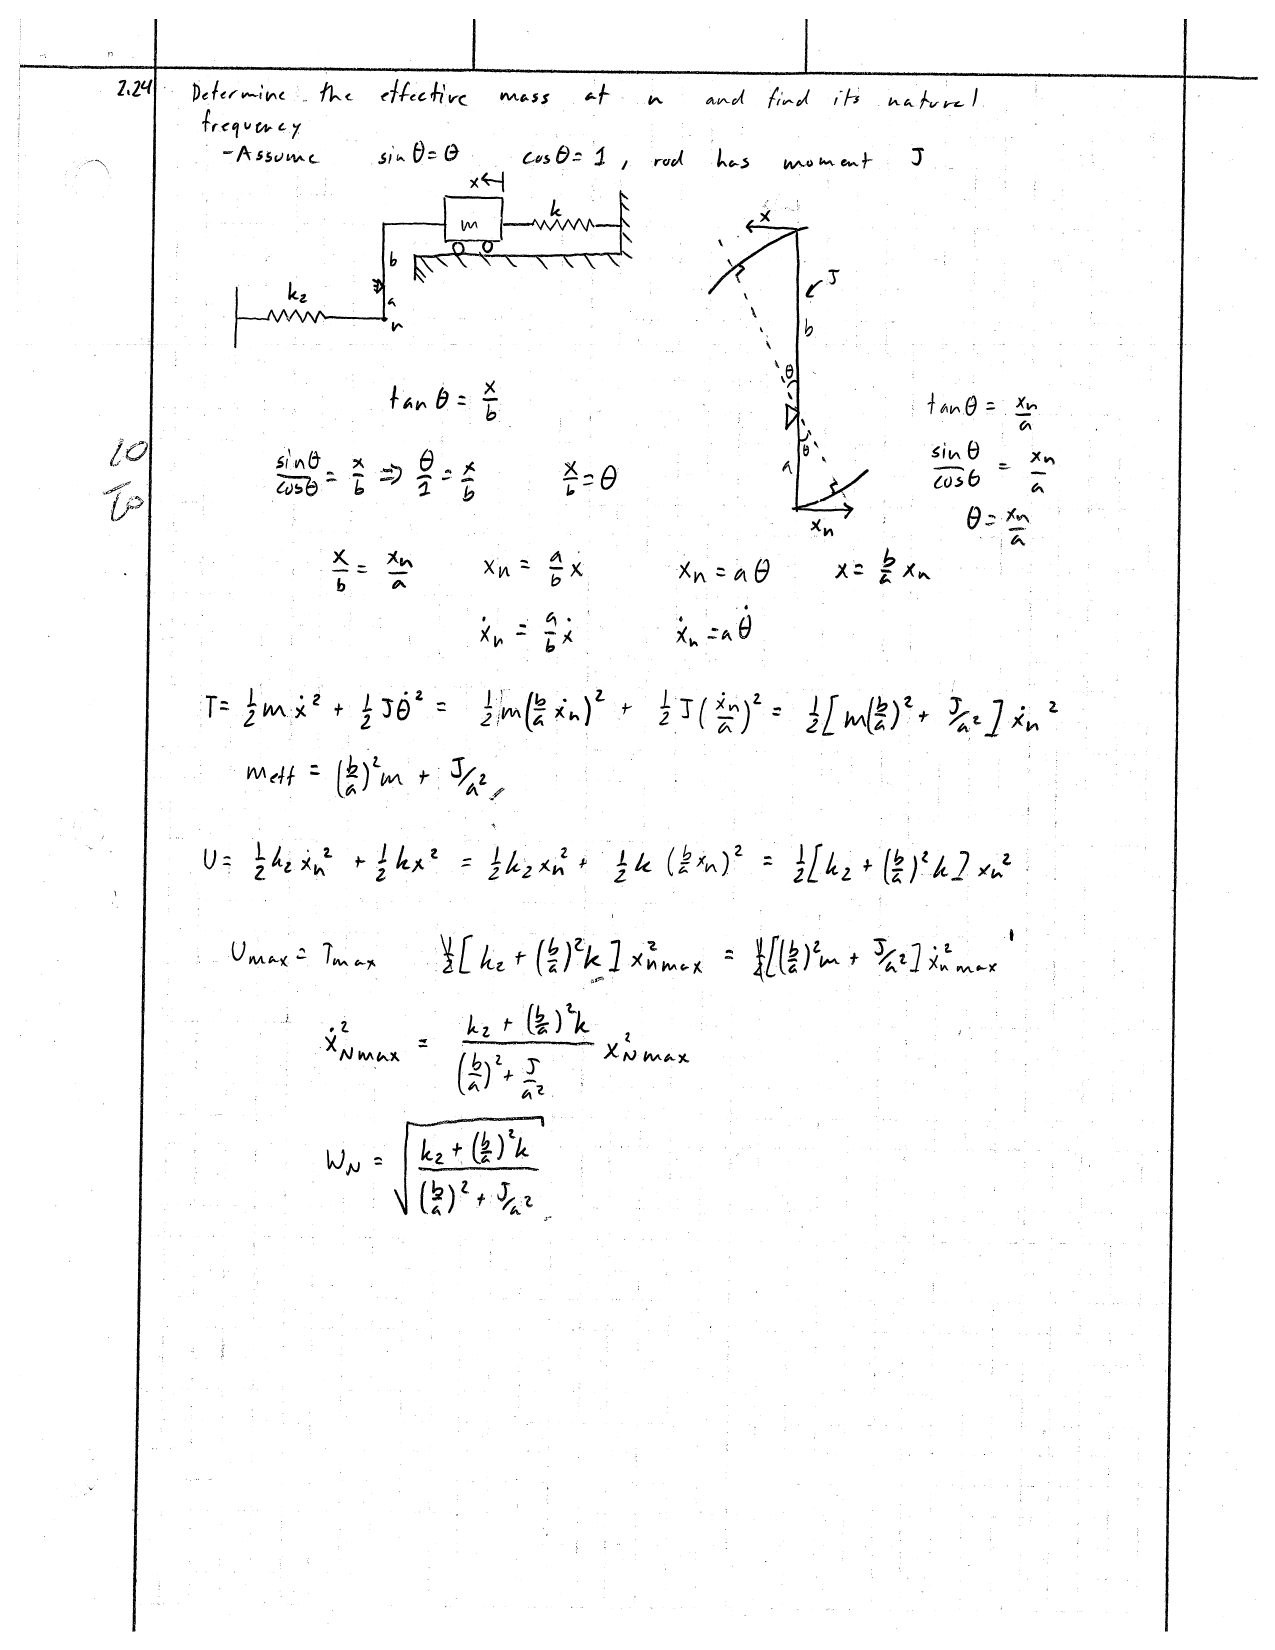 2.24 Determine the effective mass at n and find its natural
frequency
-Assume sinθ=θ cosθ=1, rod has moment J
x
m
k
b
a
n
k₂
x
J
b
θ
θ
a
xₙ
tanθ = x/b
tanθ = xₙ/a
10/10
sinθ/cosθ = x/b ⇒ θ/1 = x/b x/b = θ
sinθ/cosθ = xₙ/a
θ = xₙ/a
x/b = xₙ/a xₙ = a/b x xₙ = aθ x = b/a xₙ
ẋₙ = a/b ẋ ẋₙ = aθ̇
T = ½mẋ² + ½Jθ̇² = ½m(b/a ẋₙ)² + ½J(ẋₙ/a)² = ½[m(b/a)² + J/a²]ẋₙ²
meff = (b/a)²m + J/a²
U = ½k₂xₙ² + ½kx² = ½k₂xₙ² + ½k(b/a xₙ)² = ½[k₂ + (b/a)²k]xₙ²
Umax = Tmax ½[k₂ + (b/a)²k]x²ₙmax = ½[(b/a)²m + J/a²]ẋ²ₙmax
ẋ²Nmax = (k₂ + (b/a)²k)/((b/a)² + J/a²) x²Nmax
WN = √((k₂ + (b/a)²k)/((b/a)² + J/a²))